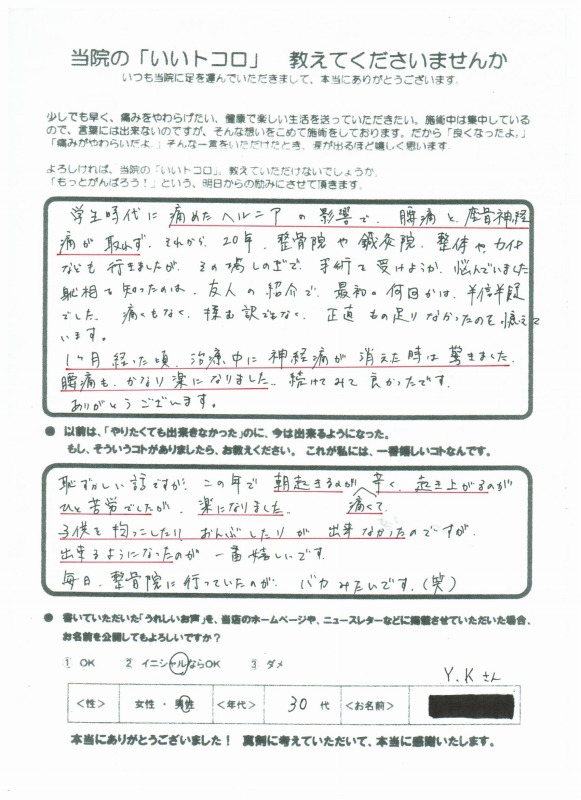 当院の「いいトコロ」　教えてくださいませんか
いつも当院に足を運んでいただきまして、本当にありがとうございます。
少しでも早く、痛みをやわらげたい、健康で楽しい生活を送っていただきたい。施術中は集中している
ので、言葉には出来ないのですが、そんな想いをこめて施術をしております。だから「良くなったよ」
「痛みがやわらいだよ」そんな一言をいただけたとき、涙が出るほど嬉しく思います。
よろしければ、当院の「いいトコロ」、教えていただけないでしょうか。
「もっとがんばろう！」という、明日からの励みにさせて頂きます。
学生時代に痛めたヘルニアの影響で、腰痛と、座骨神経
痛が取れず、それから、20年、整骨院や鍼灸院、整体やカイロ
なども行きましたが、その場しのぎで、手術を受けようか、悩んでいました
を知ったのは、友人の紹介で、最初の何回かは、半信半疑
でした。痛くもなく、揉む訳でもなく、正直もの足りなかったのを憶えて
います。
1ヶ月経った頃、治療中に神経痛が消えた時は驚きました。
腰痛も、かなり楽になりました。続けてみて良かったです。
ありがとうございます。
● 以前は、「やりたくても出来きなかった」のに、今は出来るようになった。
もし、そういうコトがありましたら、お教えください。 これが私には、一番嬉しいコトなんです。
恥ずかしい話ですが、この年で朝起きるのが辛く、起き上がるのが
ひと苦労でしたが、楽になりました。 痛くて
子供を抱っこしたり、おんぶしたりが出来なかったのですが
出来るようになったのが一番嬉しいです。
毎日、整骨院に行っていたのが、バカみたいです。(笑)
● 書いていただいた「うれしいお声」を、当店のホームページや、ニュースレターなどに掲載させていただいた場合、
お名前を公開してもよろしいですか？
① OK　② イニシャルならOK　③ ダメ
Y.Kさん
＜性＞　女性・男性　＜年代＞　30代　＜お名前＞
本当にありがとうございました！ 真剣に考えていただいて、本当に感謝いたします。